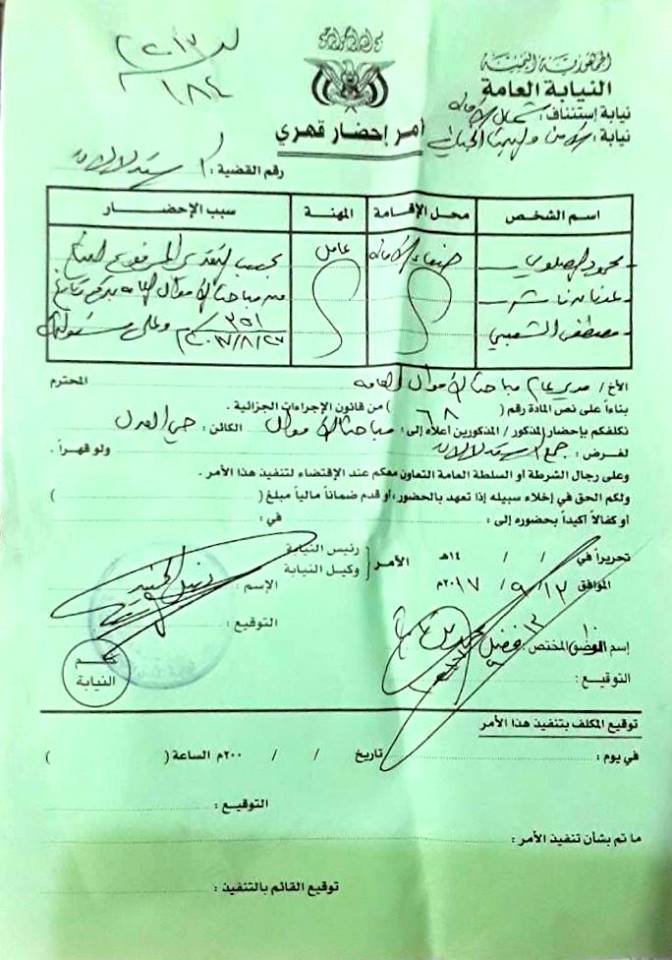 الجمهورية اليمنية
النيابة العامة
نيابة إستئناف : شمال الأمانة
نيابة : الأمن والبحث الجنائي
أمر إحضار قهري
رقم القضية :
اسم الشخص
محل الإقامة
المهنة
سبب الإحضار
محمود
صنعاء الأمانة
عامل
بحسب التقدير المرفوع
عدنان ناشر
من مباحث الأموال العامة برقم وتاريخ
مصطفى الشعيبي
٢٥١
٢٠١٧/٨/٢٧م وعلى
الأخ / مدير عام مباحث الأموال العامة المحترم
بناءاً على نص المادة رقم ( ٦٨ ) من قانون الإجراءات الجزائية .
نكلفكم بإحضار المذكور / المذكورين أعلاه إلى : مباحث الأموال الكائن : حي العدل
لغرض : جمع ولو قهراً .
وعلى رجال الشرطة أو السلطة العامة التعاون معكم عند الإقتضاء لتنفيذ هذا الأمر .
ولكم الحق في إخلاء سبيله إذا تعهد بالحضور، أو قدم ضماناً مالياً مبلغ ( )
أو كفالاً أكيداً بحضوره إلى : في :
تحريراً في / / ١٤هـ
الموافق ١٢ / ٩ / ٢٠١٧م
الأمر
رئيس النيابة
وكيل النيابة
الإسم :
التوقيع :
ختم النيابة
إسم الموظف المختص : فضل
التوقيع :
توقيع المكلف بتنفيذ هذا الأمر
في يوم : تاريخ / / ٢٠٠م الساعة ( )
التوقيع :
ما تم بشأن تنفيذ الأمر :
توقيع القائم بالتنفيذ :